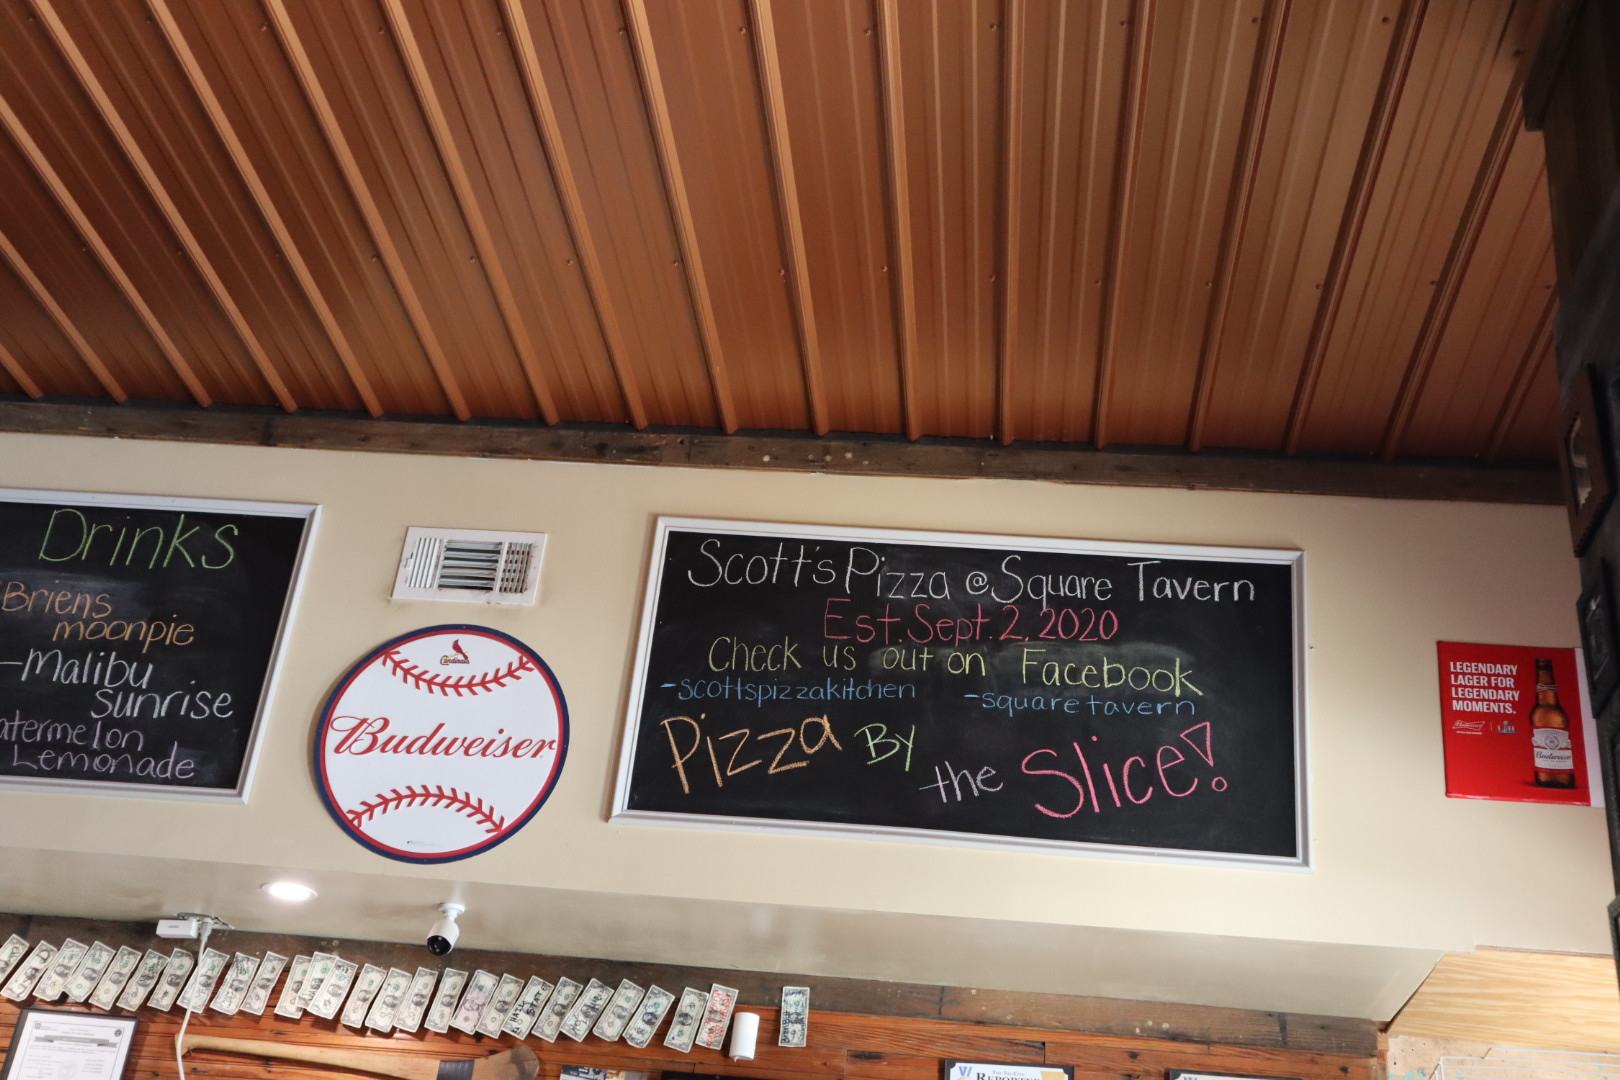 Drinks
Briens
moonpie
-Malibu
sunrise
atermelon
Lemonade
Cardinals
Budweiser
Scott's Pizza @ Square Tavern
Est. Sept. 2, 2020
Check us out on Facebook
-scottspizzakitchen -squaretavern
Pizza By
the Slice!
LEGENDARY
LAGER FOR
LEGENDARY
MOMENTS.
Budweiser
Budweiser
REPORTER